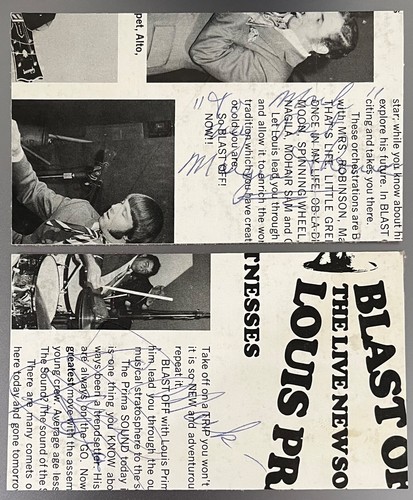 pet, Alto,
star; while you know about hi
explore his future. In BLAST
citing and takes you there.
These orchestrations are B
with MRS. ROBINSON, Ma
THAT'S LIFE, LITTLE GRE
ONCE IN MY LIFE, OB-LA-DI
MOON, SPINNING WHEEL,
NAGILA, MOHAIR SAM and C
Let Louis lead you through
and allow it to enrich the wor
tradition which you have creat
or old you are.
So BLAST OFF!
NOW!!
BLAST OF
THE LIVE NEW SO
LOUIS PR
TNESSES
Take off on a TRIP you won't
it is so NEW and adventurou
repeat it.
BLAST OFF with Louis Prim
him, lead you through the ou
musical stratosphere to the s
The Prima SOUND today i
is one thing you KNOW abo
ways been a trendsetter. His
are always on the GO. Now
greatest move with the assem
young crew. Average age less
The Sound? The sound of the S
There are many comets o
here today and gone tomorro